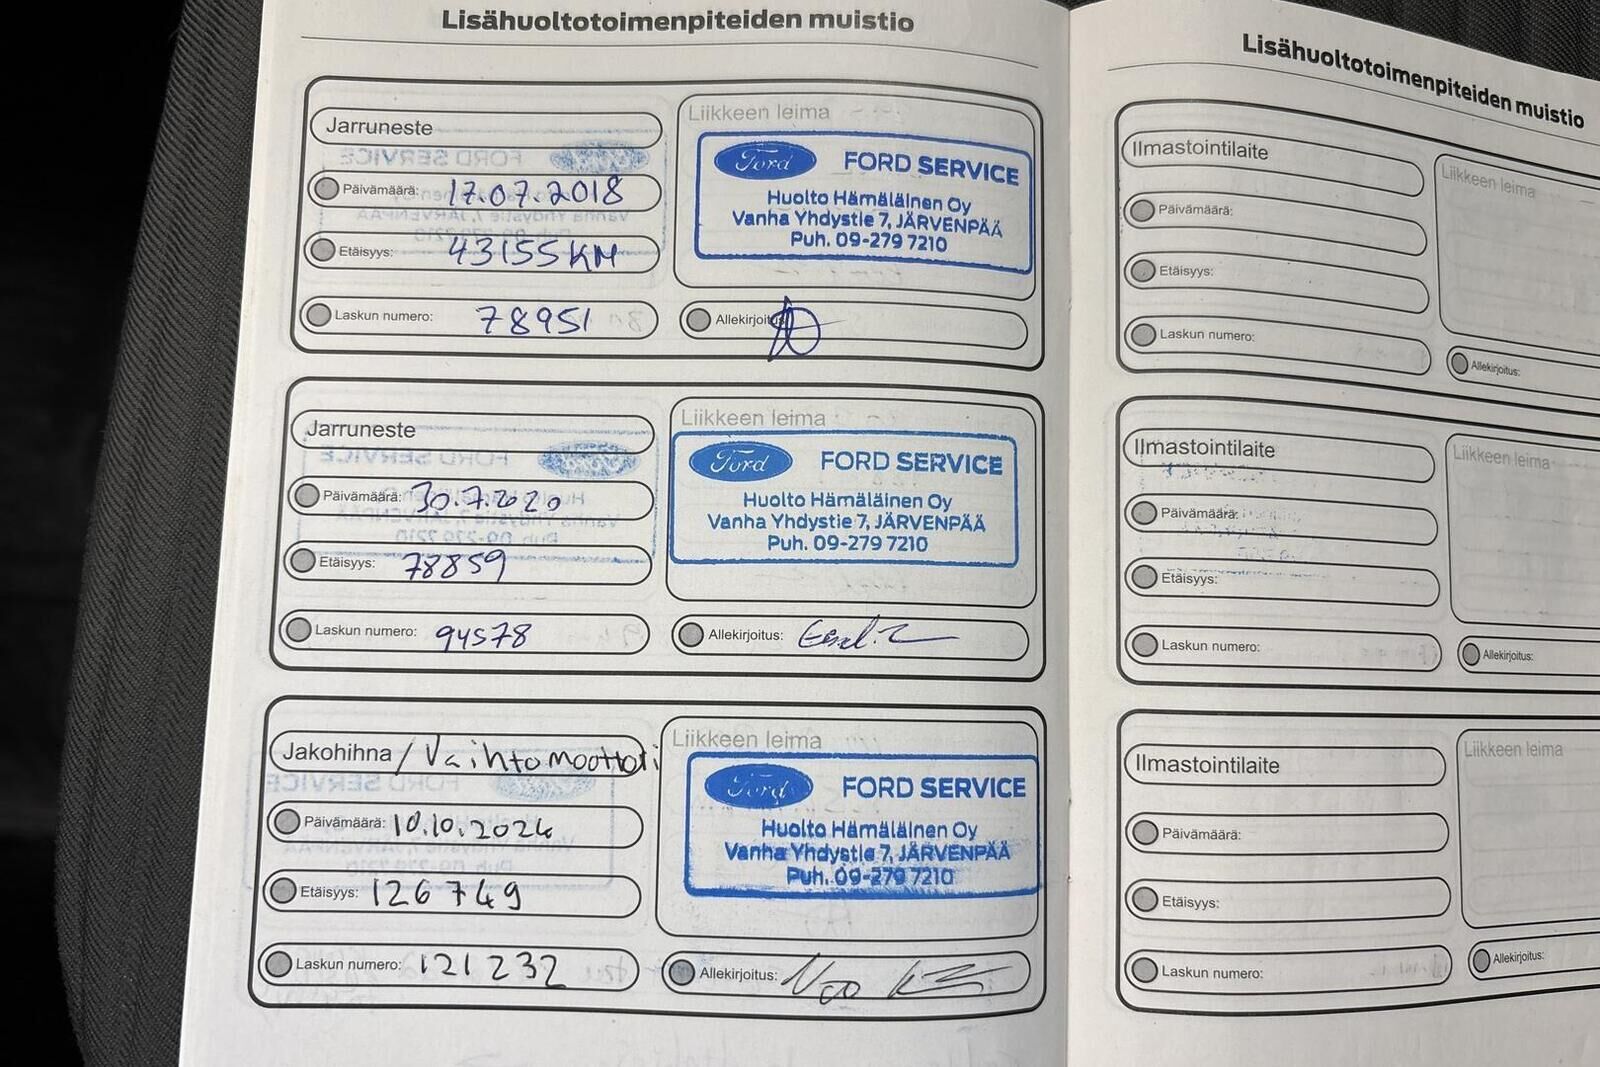 Lisähuoltotoimenpiteiden muistio
Jarruneste
Päivämäärä: 17.07.2018
Etäisyys: 43155KM
Laskun numero: 78951
Liikkeen leima
Ford FORD SERVICE
Huolto Hämäläinen Oy
Vanha Yhdystie 7, JÄRVENPÄÄ
Puh. 09-279 7210
Allekirjoitus:
Jarruneste
Päivämäärä: 30.7.2020
Etäisyys: 78859
Laskun numero: 94578
Liikkeen leima
Ford FORD SERVICE
Huolto Hämäläinen Oy
Vanha Yhdystie 7, JÄRVENPÄÄ
Puh. 09-279 7210
Allekirjoitus:
Jakohihna / Vaihtomoottori
Päivämäärä: 10.10.2024
Etäisyys: 126 749
Laskun numero: 121 232
Liikkeen leima
Ford FORD SERVICE
Huolto Hämäläinen Oy
Vanha Yhdystie 7, JÄRVENPÄÄ
Puh. 09-279 7210
Allekirjoitus:
Lisähuoltotoimenpiteiden muistio
Ilmastointilaite
Päivämäärä:
Etäisyys:
Laskun numero:
Liikkeen leima
Allekirjoitus:
Ilmastointilaite
Päivämäärä:
Etäisyys:
Laskun numero:
Liikkeen leima
Allekirjoitus:
Ilmastointilaite
Päivämäärä:
Etäisyys:
Laskun numero:
Liikkeen leima
Allekirjoitus: